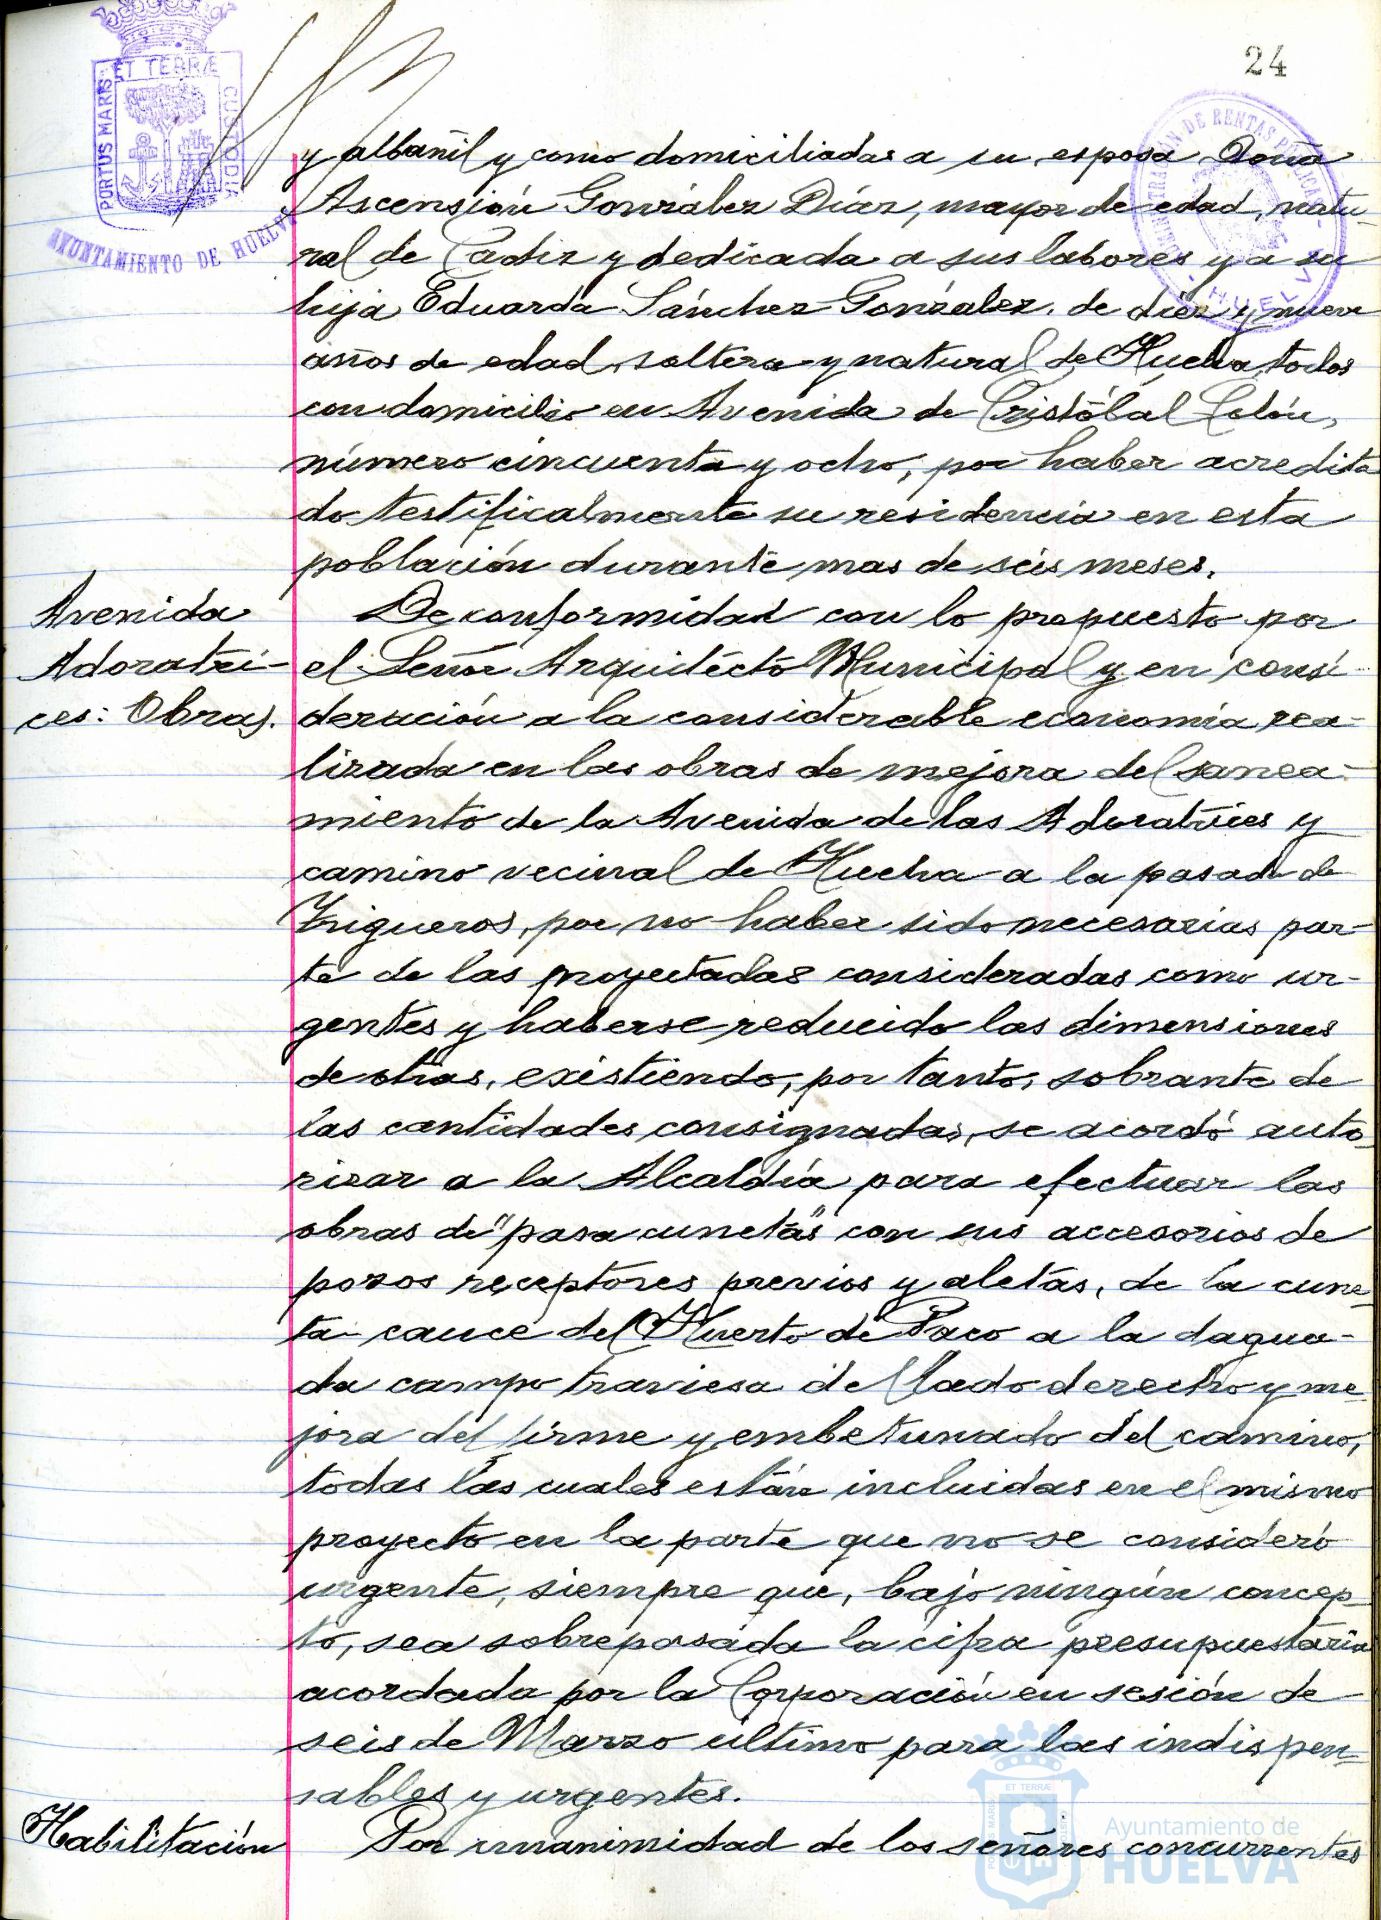 24
PORTUS MARIS ET TERRÆ CUSTODIA
AYUNTAMIENTO DE HUELVA
DE RENTAS PUBLICAS
HUELVA
y albañil y como domiciliadas a su esposa Doña
Ascensión González Díaz, mayor de edad, natu-
ral de Cadiz y dedicada a sus labores y a su
hija Eduarda Sánchez González, de diez y nueve
años de edad, soltera y natural de Huelva, todos
con domicilio en Avenida de Cristóbal Colón,
número cincuenta y ocho, por haber acredita
do testificalmente su residencia en esta
población durante mas de seis meses.
Avenida
Adoratri-
ces: Obras.
De conformidad con lo propuesto por
el Señor Arquitecto Municipal y en consi-
deración a la considerable economía rea-
lizada en las obras de mejora del sanea-
miento de la Avenida de las Adoratrices y
camino vecinal de Huelva a la pasada de
Trigueros, por no haber sido necesarias par-
te de las proyectadas consideradas como ur-
gentes y haberse reducido las dimensiones
de otras, existiendo, por tanto, sobrante de
las cantidades consignadas, se acordó auto-
rizar a la Alcaldía para efectuar las
obras de "pasa cunetas" con sus accesorios de
pozos receptores previos y aletas, de la cune-
ta cauce del Huerto de Paco a la dagua-
da campo traviesa del lado derecho y me-
jora del firme y embetunado del camino,
todas las cuales están incluidas en el mismo
proyecto en la parte que no se consideró
urgente, siempre que, bajo ningún concep-
to, sea sobrepasada la cifra presupuestaria
acordada por la Corporación en sesión de
seis de Marzo ultimo para las indispen-
sables y urgentes.
Habilitación
Por unanimidad de los señores concurrentes
Ayuntamiento de
HUELVA